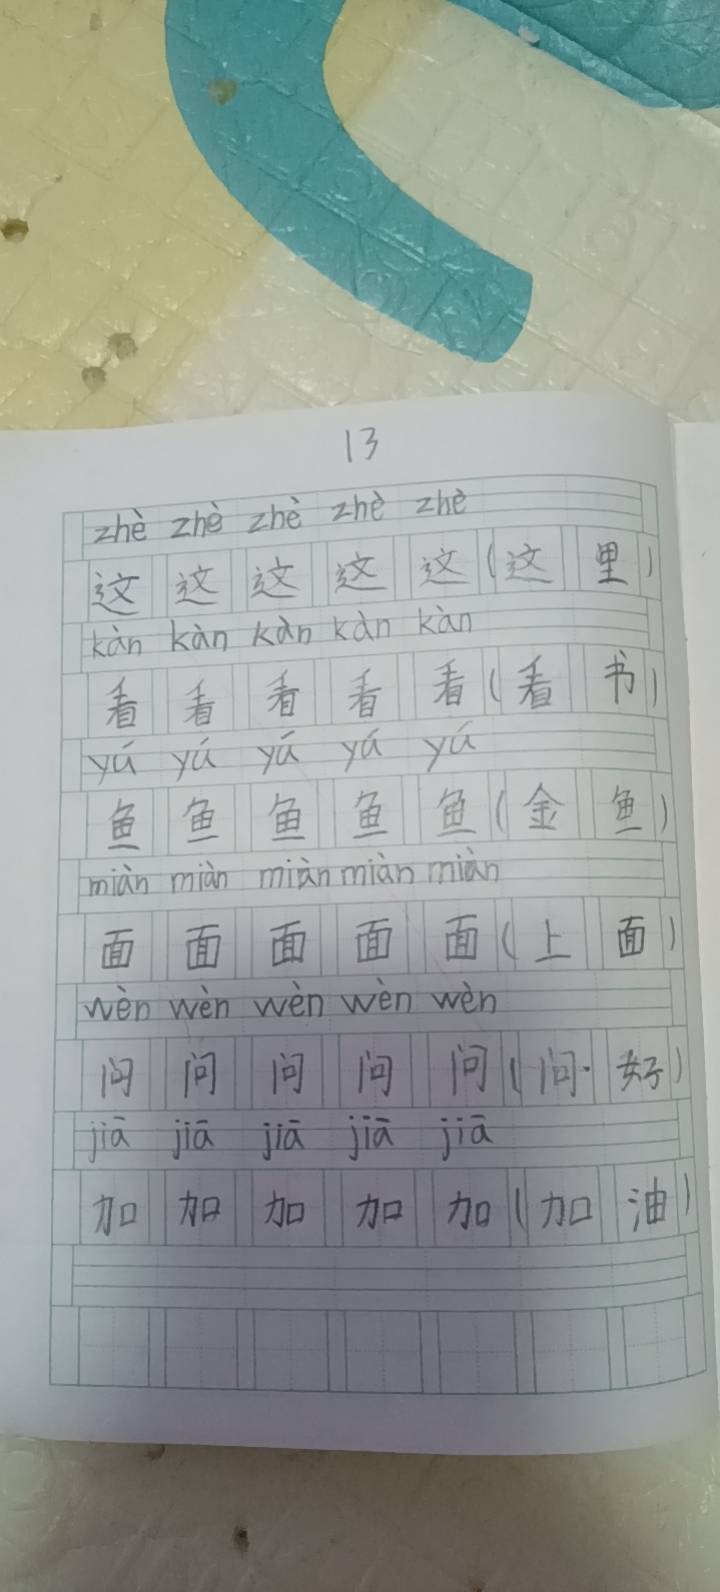 13
zhè zhè zhè zhè zhè
这 这 这 这 这 (这 里)
kàn kàn kàn kàn kàn
看 看 看 看 看 (看 书)
yú yú yú yú yú
鱼 鱼 鱼 鱼 鱼 (金 鱼)
miàn miàn miàn miàn miàn
面 面 面 面 面 (上 面)
wèn wèn wèn wèn wèn
问 问 问 问 问 (问 好)
jiā jiā jiā jiā jiā
加 加 加 加 加 (加 油)